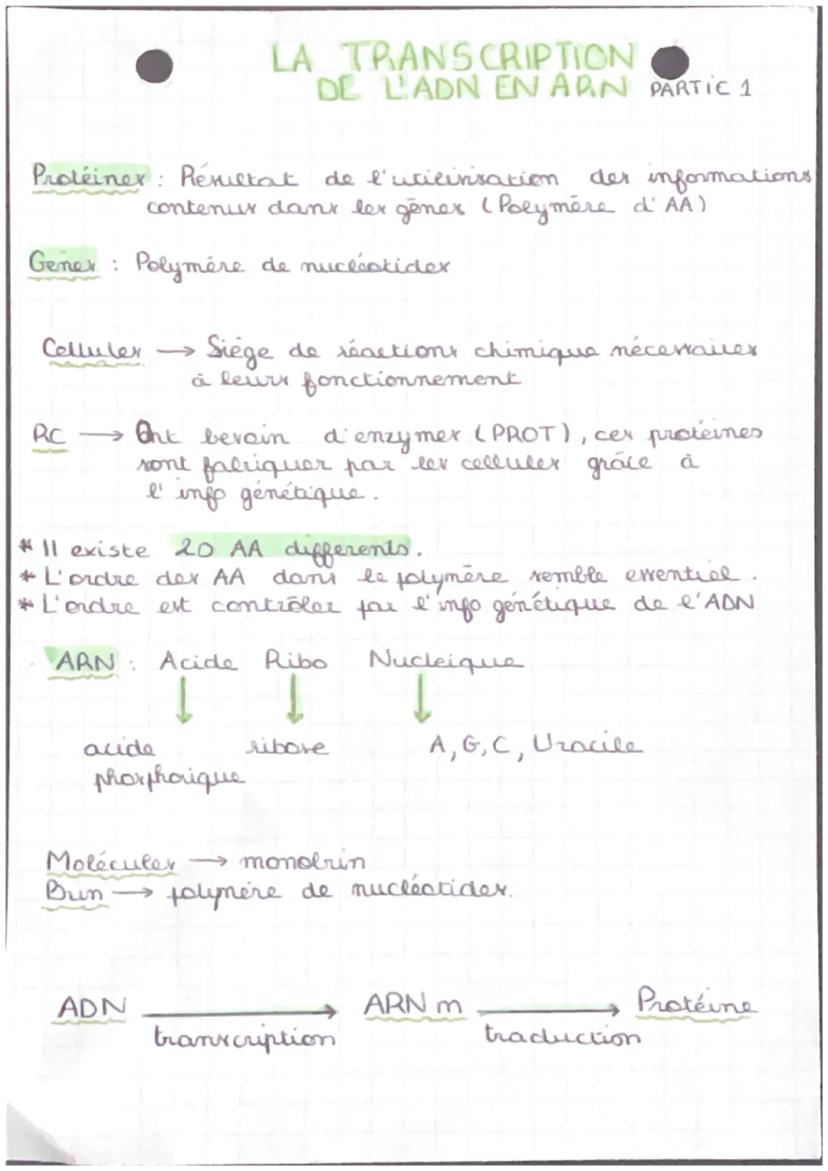 LA TRANSCRIPTION
DE L'ADN EN ARN PARTIE 1
Protéines : Résultat de l'utilinisation des informations
contenus dans les gènes (Polymère d'AA)
Genes : Polymère de nucléotides
Cellules → Siège de réactions chimique nécessaires
à leurs fonctionnement
RC → Ont besoin d'enzymes (PROT), ces protéines
sont fabriquer par les cellules grâce à
l'info génétique.
* Il existe 20 AA differents.
* L'ordre des AA dans le polymère semble essentiel.
* L'ordre est contrôler par l'info génétique de l'ADN
ARN : Acide Ribo Nucleique
↓ ↓ ↓
acide ribose A, G, C, Uracile
phosphorique
Molécules → monobrin
Brin → polymère de nucléotides.
ADN → ARN m → Protéine
transcription traduction